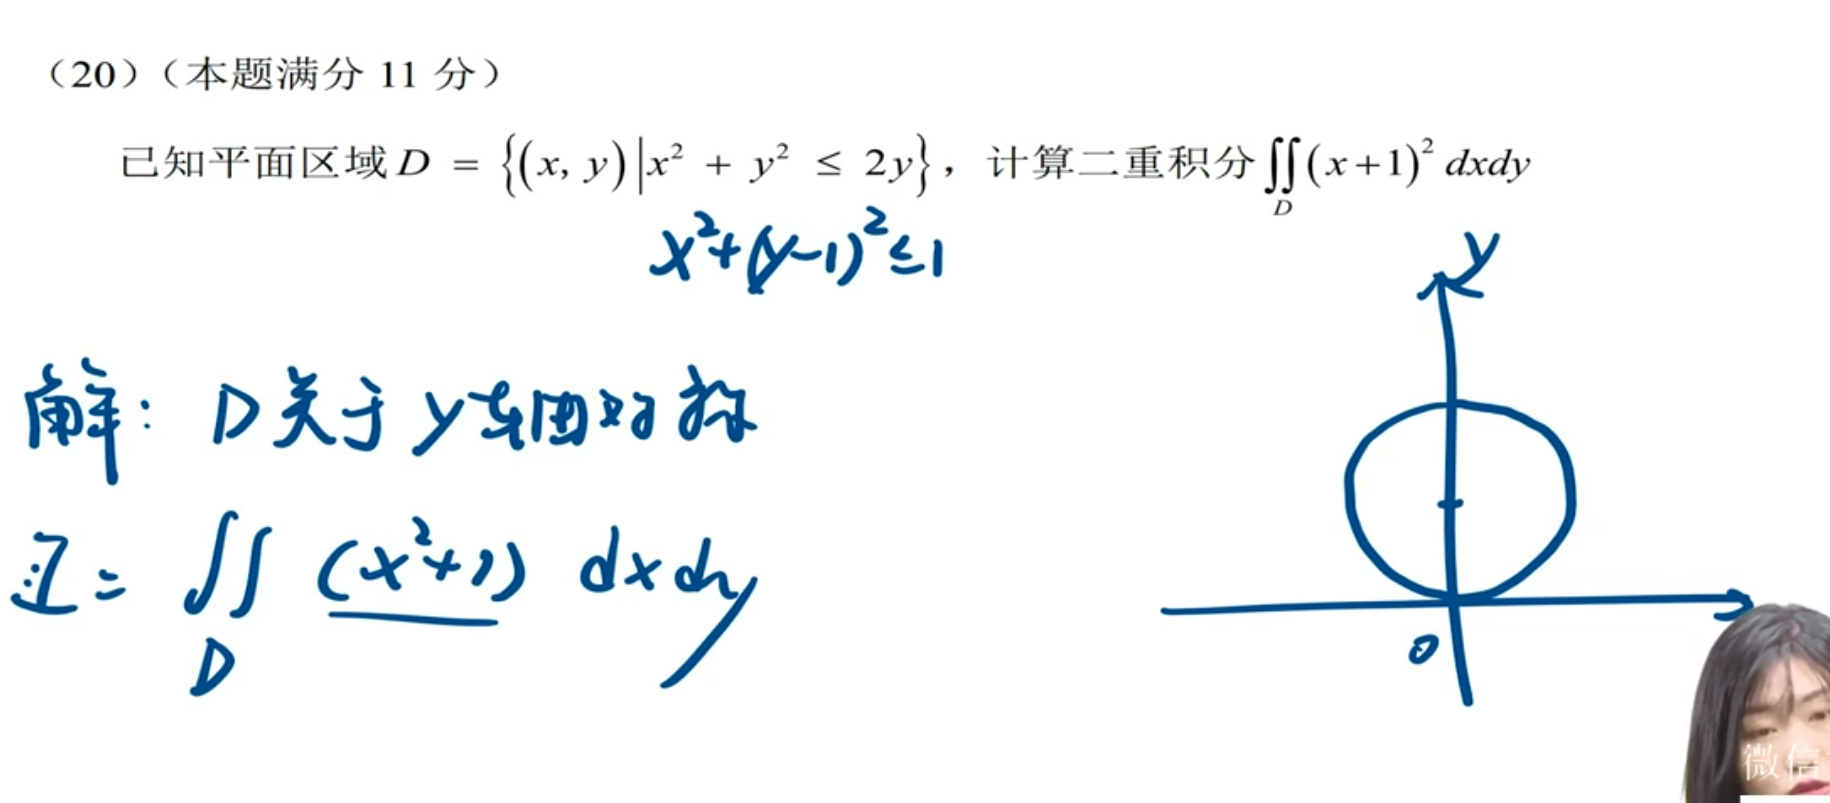 (20)(本题满分 11 分)
已知平面区域 D = {(x, y)|x² + y² ≤ 2y}，计算二重积分∬(x+1)² dxdy
D
x²+(y-1)²≤1
y
解: D关于y轴对称
I = ∬ (x²+1) dxdy
D
0
微信